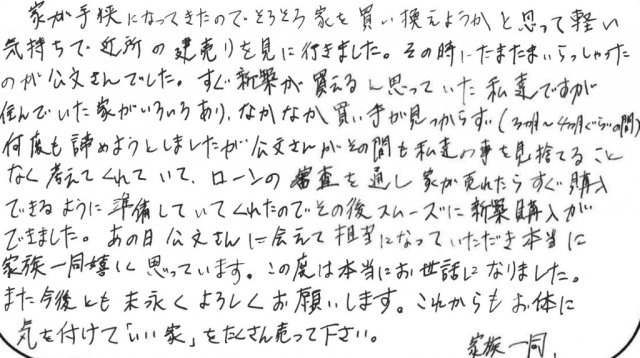 家が手狭になってきたのでそろそろ家を買い換えようかと思って軽い
気持ちで近所の建売りを見に行きました。その時にたまたまいらっしゃった
のが公文さんでした。すぐ新築が買えると思っていた私達ですが
住んでいた家がいろいろあり、なかなか買い手が見つからず(3ヶ月〜4ヶ月ぐらいの間)
何度も諦めようとしましたが公文さんがその間も私達の事を見捨てること
なく考えてくれていて、ローンの審査を通し家が売れたらすぐ購入
できるように準備していてくれたのでその後スムーズに新築購入が
できました。あの日公文さんに会えて担当になっていただき本当に
家族一同嬉しく思っています。この度は本当にお世話になりました。
また今後とも末永くよろしくお願いします。これからもお体に
気を付けて「いい家」をたくさん売って下さい。
家族一同.